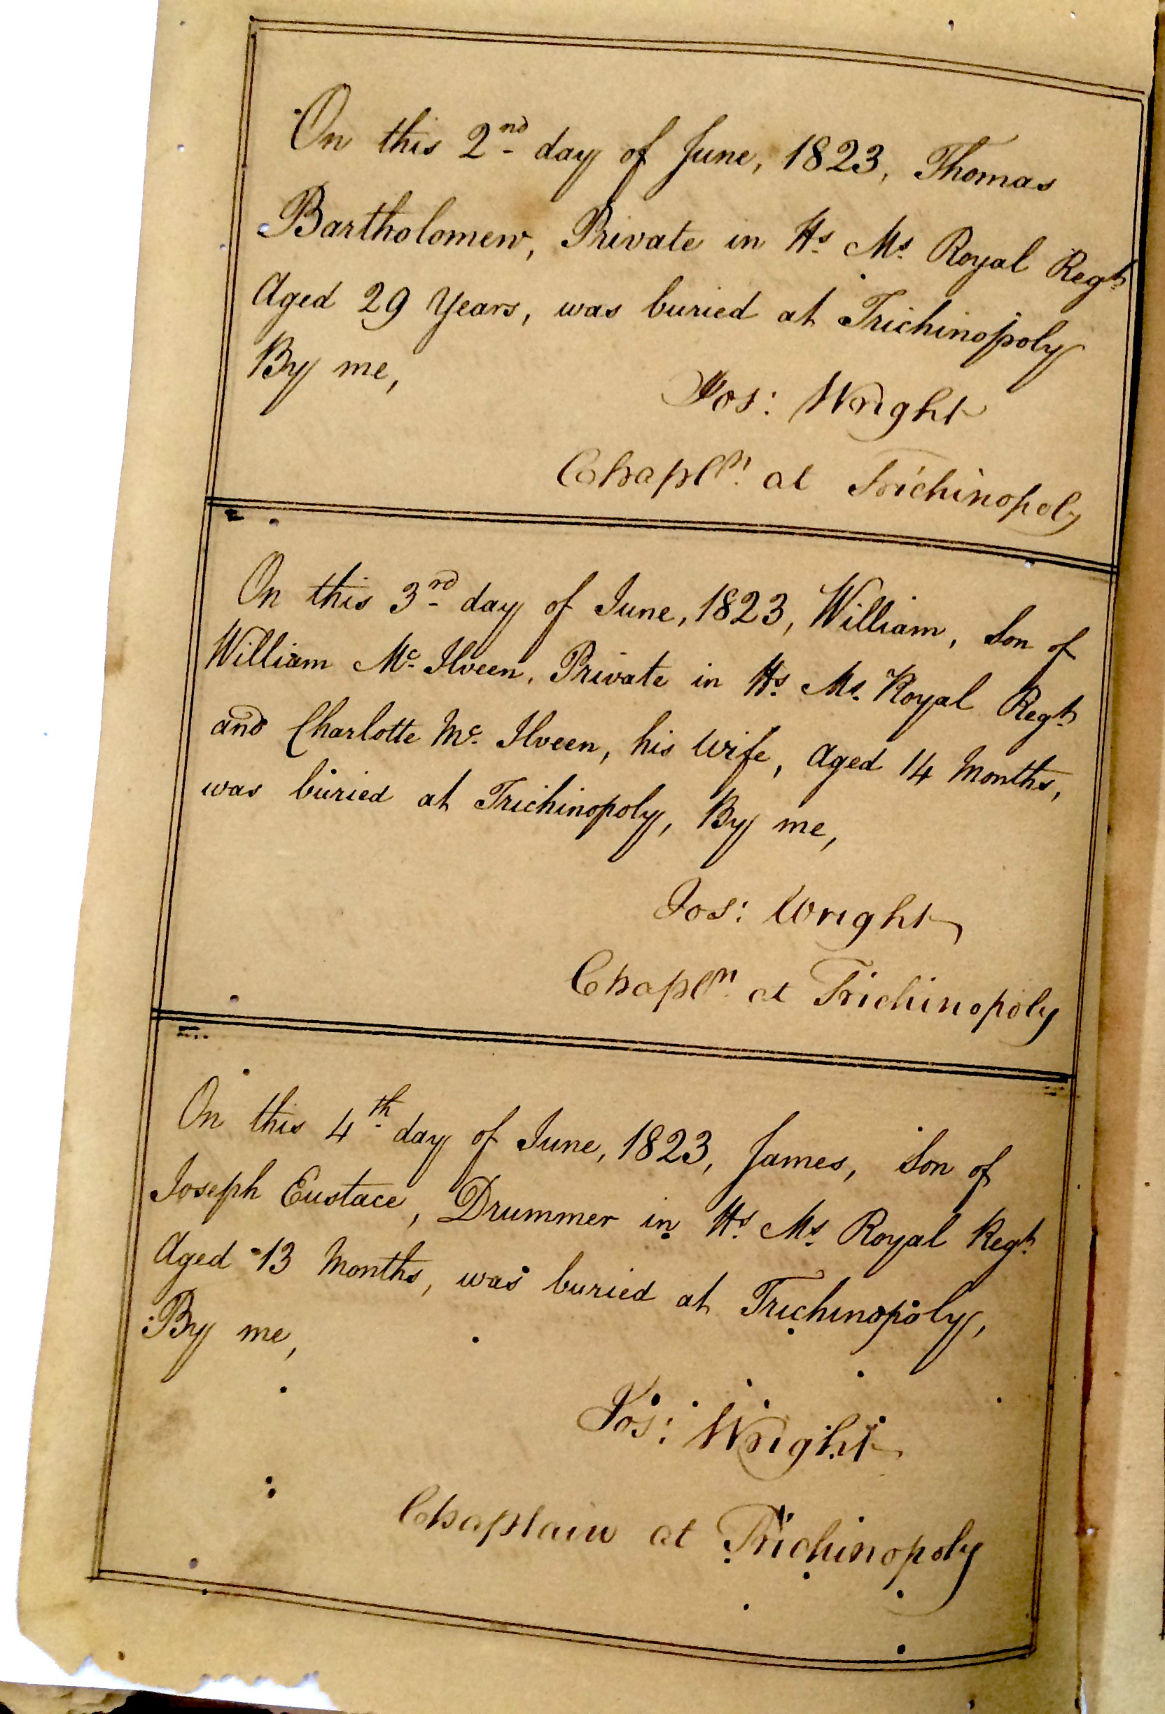 On this 2nd day of June, 1823, Thomas
Bartholomew, Private in Hs. Ms. Royal Regt.
Aged 29 Years, was buried at Trichinopoly
By me,
Jos: Wright
Chapln. at Trichinopoly
On this 3rd day of June, 1823, William, Son of
William Mc. Ilveen, Private in Hs. Ms. Royal Regt.
and Charlotte Mc. Ilveen, his Wife, Aged 14 Months,
was buried at Trichinopoly, By me,
Jos: Wright
Chapln. at Trichinopoly
On this 4th day of June, 1823, James, Son of
Joseph Eustace, Drummer in Hs. Ms. Royal Regt.
Aged 13 Months, was buried at Trichinopoly,
By me,
Jos: Wright
Chaplain at Trichinopoly